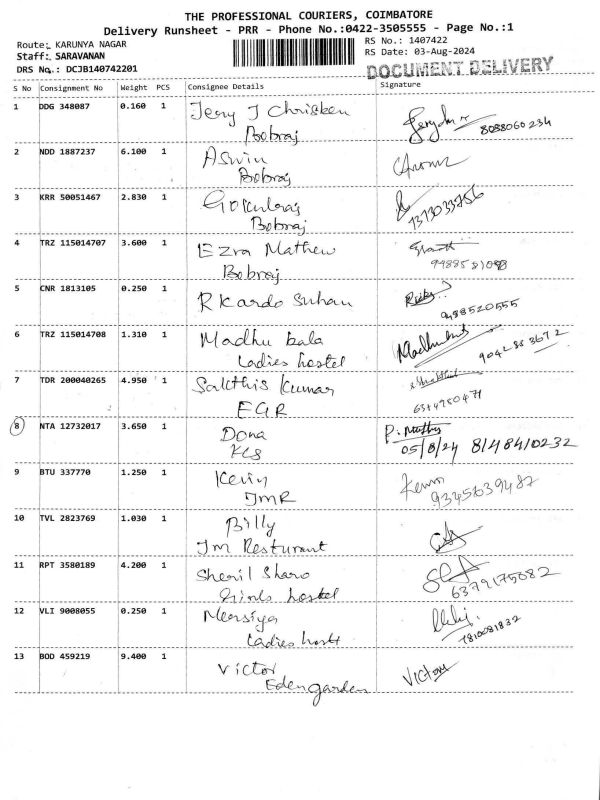 THE PROFESSIONAL COURIERS, COIMBATORE
Delivery Runsheet - PRR - Phone No.:0422-3505555 - Page No.:1
Route: KARUNYA NAGAR RS No.: 1407422
Staff: SARAVANAN RS Date: 03-Aug-2024
DRS No.: DCJB140742201 DOCUMENT DELIVERY
S No Consignment No Weight PCS Consignee Details Signature
1 DDG 348087 0.160 1 Jery J Chrisben
Bobraj 8098060234
2 NDD 1887237 6.100 1 Aswin
Bobraj
3 KRR 50051467 2.830 1 Gokulraj
Bobraj 7373033756
4 TRZ 115014707 3.600 1 Ezra Mathew
Bobraj
5 CNR 1813105 0.250 1 Rkardo Suhan
9488520555
6 TRZ 115014708 1.310 1 Madhu bala
Ladies hostel
7 TDR 200040265 4.950 1 Sakthis Kumar
EGR
8 NTA 12732017 3.650 1 Dona P. Muthu
KCS 05/8/24 8148410232
9 BTU 337770 1.250 1 Kevin Kevin
JMR 9345639487
10 TVL 2823769 1.030 1 Billy
Jm Resturant
11 RPT 3580189 4.200 1 Sheril Sharo
Girls hostel 6379175082
12 VLI 9008055 0.250 1 Mersiya
Ladies host 7810081832
13 BOD 459219 9.400 1 Victor Victor
Eden garden